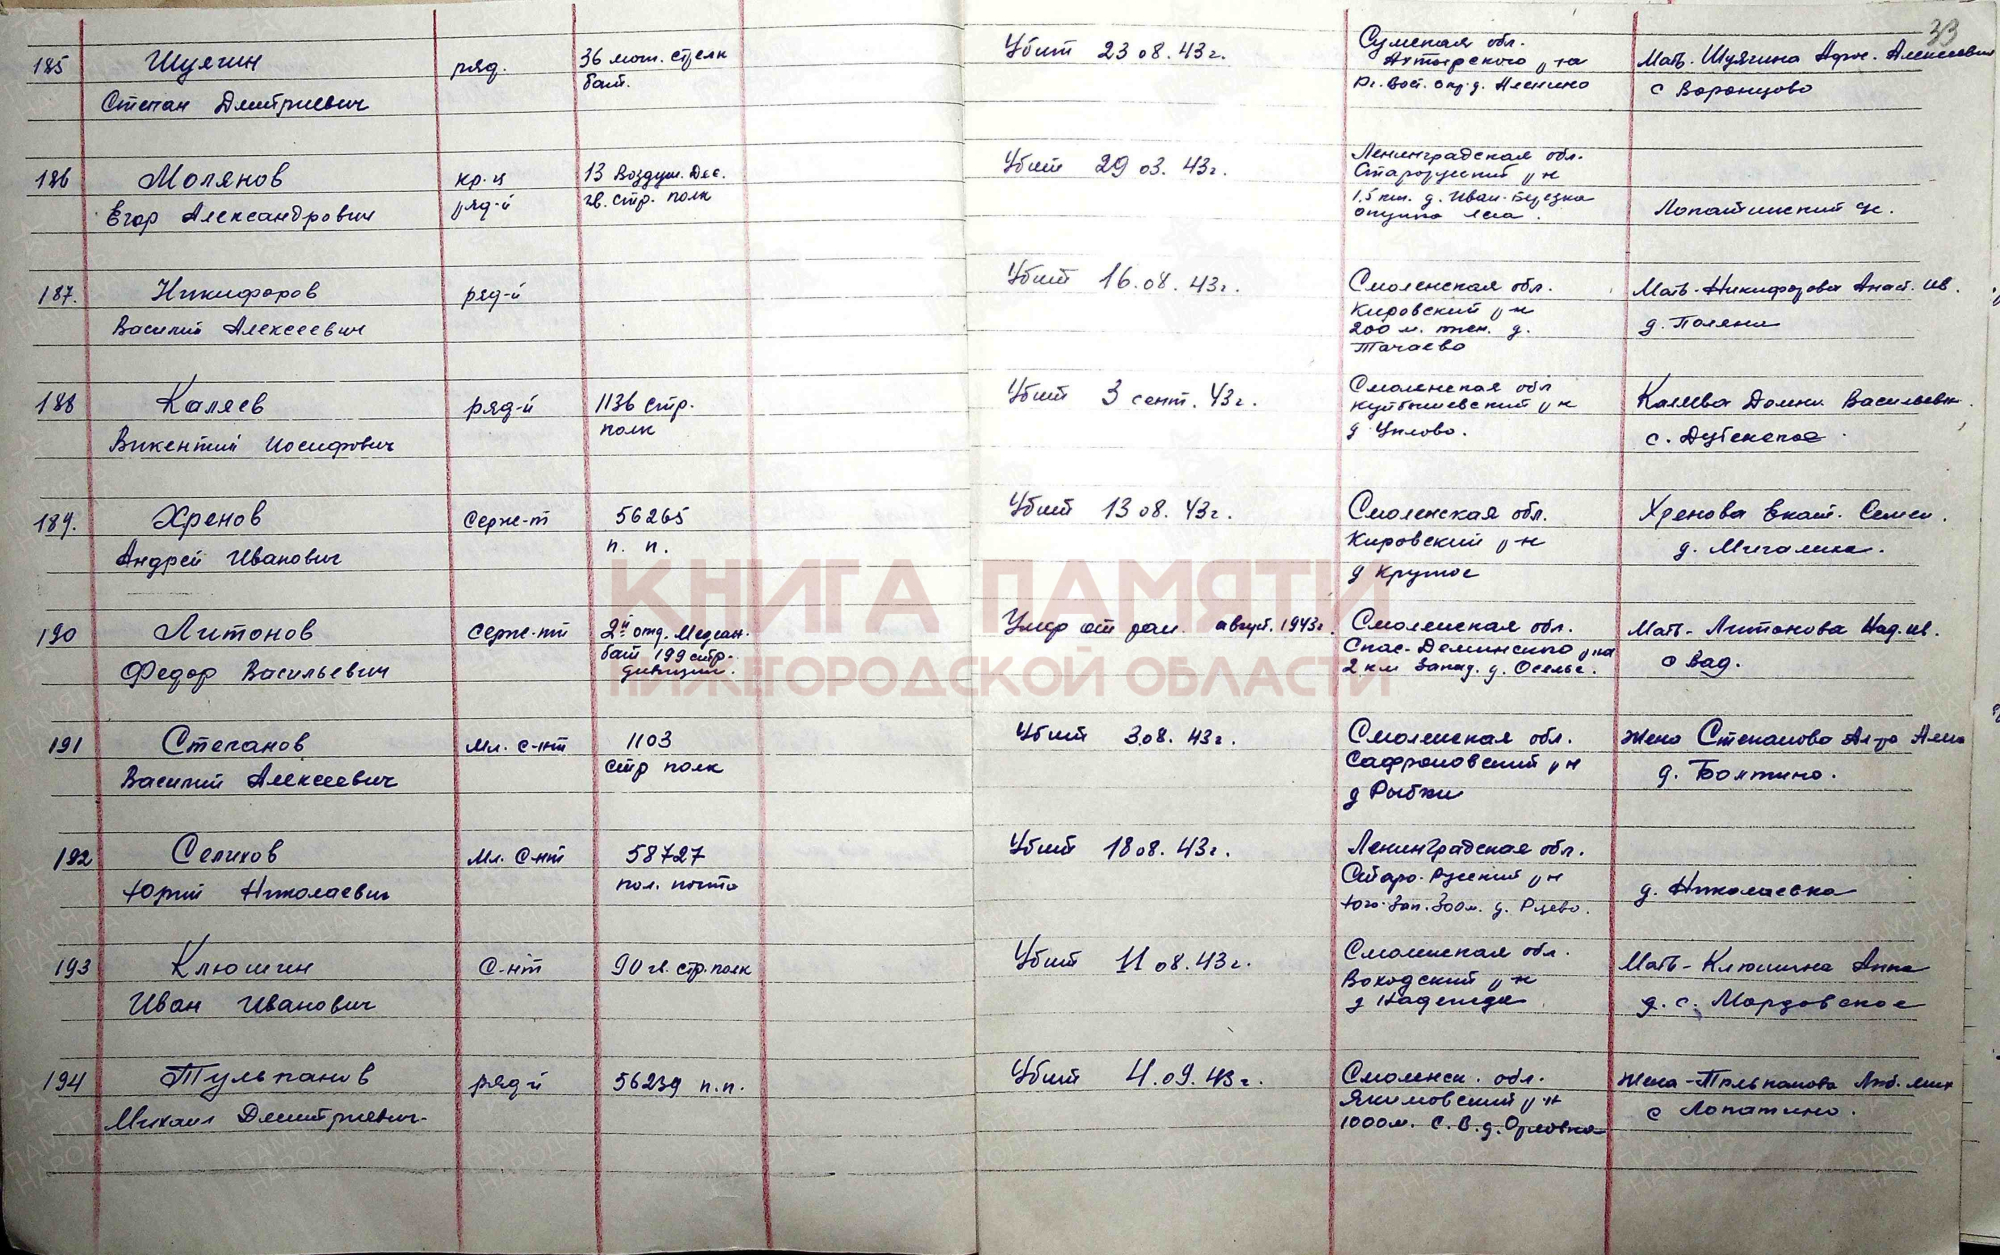 33
185 Шулягин ряд. 36 мот. стрелк Убит 23 08. 43 г. Сумская обл. Мать. Шулягина Афрос. Алексеевна
Степан Дмитриевич бат. Ахтырского р-на с Воронцово
186 Молянов кр-ц 13 Воздуш. Дес. Убит 29 03. 43 г. Ленинградская обл.
Егор Александрович ряд-й гв. стр. полк Старорусский р-н Лопатинский р-н.
1,5 км. д. Иван-Березка
опушка леса.
187. Никифоров ряд-й Убит 16.08.43 г. Смоленская обл. Мать-Никифорова Анаст. Ив.
Василий Алексеевич Кировский р-н д. Поляна
200 м. д.
188 Каляев ряд-й 1136 стр. Убит 3 сент. 43 г. Смоленская обл Каляева Домна Васильевн.
Викентий Иосифович полк Куйбышевский р-н с. Дубенское
189. Хренов Серж-т 56265 Убит 13 08. 43 г. Смоленская обл. Хренова Екат. Семен.
Андрей Иванович п. п. Кировский р-н
д Крутое
КНИГА ПАМЯТИ
190 Литонов Серж-т 2й отд. Медсан. Умер от ран. август. 1943 г. Смоленская обл. Мать-Литонова Над. Ив.
Федор Васильевич бат 199 стр. Спас-Деминского р-на с Вад.
дивизии. 2 км запад. д.
НИЖЕГОРОДСКОЙ ОБЛАСТИ
191 Степанов Мл. с-нт 1103 Убит 3.08. 43 г. Смоленская обл. жена Степанова
Василий Алексеевич стр полк Сафроновский р-н д. Болтино.
д Рыбки
192 Селихов Мл. С-нт 58727 Убит 18 08. 43 г. Ленинградская обл.
Юрий Николаевич пол. почта Старо-Русский р-н д. Николаевка
Юго-Зап. 300 м. д.
193 Клюшин С-нт 90 гв. стр. полк Убит 11 08. 43 г. Смоленская обл. Мать-Клюшина Анна
Иван Иванович р-н д. с. Мордовское
д Надежда
194 Тульпанов ряд-й 56239 п.п. Убит 4.09. 43 г. Смоленск. обл. жена-Тюльпанова Люб. Мих
Михаил Дмитриевич р-н с Лопатино.
1000 м. С.В. д. Орловка